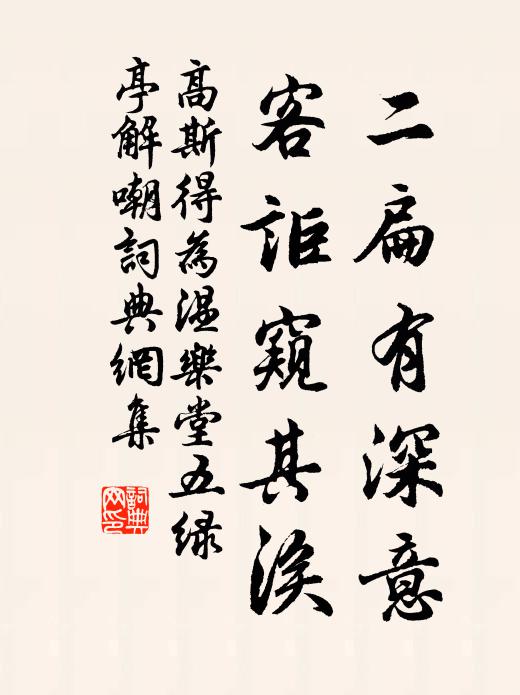 二扁有深意
客詎窺其涘
高斯得為湿樂堂五绿
亭解嘲詞典網集
詞典網印